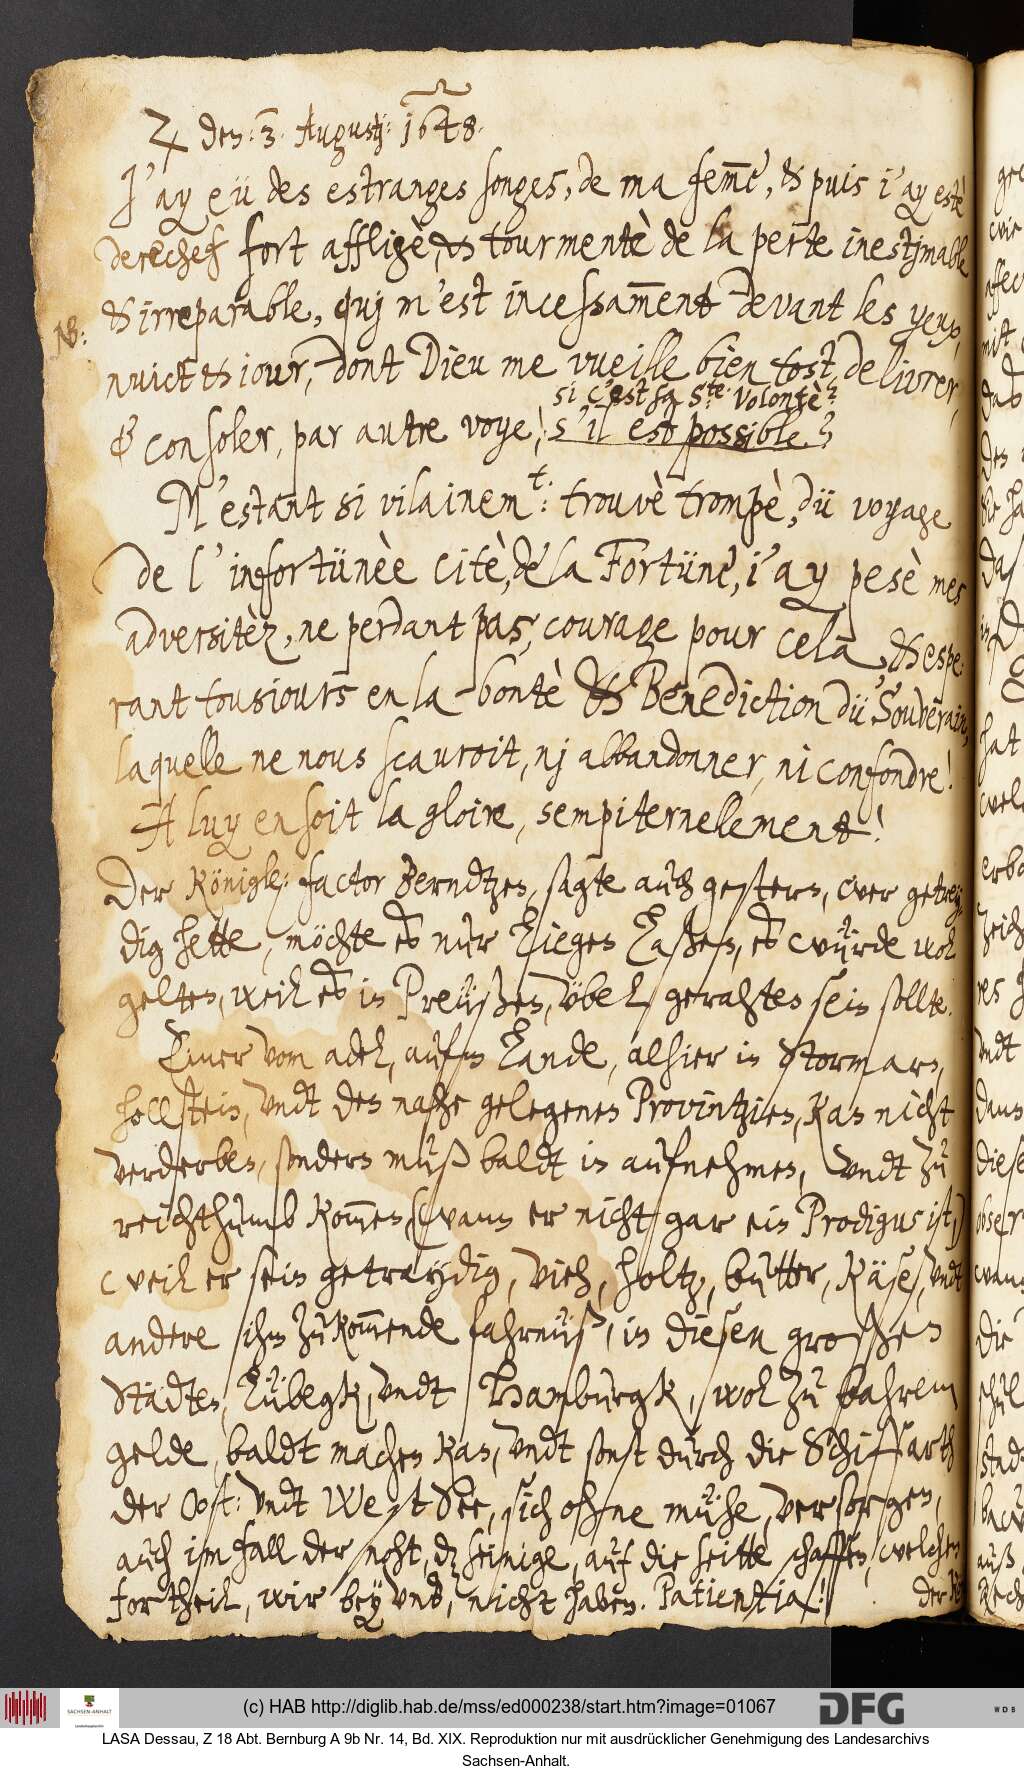 ♃ den: 3. Augustj: 1648.
J'ay eü des estranges songes, de ma fem̅e, & puis i'ay estè
derechef fort affligè, & tourmentè de la perte inestjmable
& irreparable, quj m'est incessam̅ent devant les yeux,
NB:
nuict & iour, dont Dieu me vueille bien tost, delivrer,
si c'est sa Ste. volontè?
& consoler, par autre voye, s'il est possible?
M'estant si vilainemt: trouvè trompè, dü voyage
de l'infortünèe citè, de la Fortüne, i'ay pesè mes
adversitèz, ne perdant pas, courage pour cela, & espe:
rant tousiours en la bontè & Benediction dü Souverain,
laquelle ne nous scauroit, nj abbandonner, ni confondre!
A luy en soit la gloire, sempiternellement!
Der Königl: factor Berndtzen, sagte auch gestern, wer getrey:
dig hette, möchte es nur liegen laßen, es würde wol
gelten, weil es in Preüßen, übel gerahten sein sollte.
Einer vom adel, aufm Lande, alhier in Stormarn,
hollstein, vndt den nahe gelegenen Provintzien, kan nicht
verderben, sondern muß baldt in aufnehmen, vndt zu
reichthumb kom̅en, (wann er nicht gar ein Prodigus ist,)
weil er sein getraydig, vieh, holtz, butter, käse, vndt
andere ihm zukom̅ende fahrnüß, in diesen großen
Städten, Lübegk, vndt Hamburgk, wol zu bahrem
gelde, baldt machen kan, vndt sonst durch die Schiffarth
der Oost: vndt West See, sich ohne mühe, versorgen,
auch im fall der noht, dz seinige, auf die seitte schaffen, welchen
fortheil, wir bey vns, nicht haben. Patientia!
der
(c) HAB http://diglib.hab.de/mss/ed000238/start.htm?image=01067
SACHSEN-ANHALT
DFG
WDB
LASA Dessau, Z 18 Abt. Bernburg A 9b Nr. 14, Bd. XIX. Reproduktion nur mit ausdrücklicher Genehmigung des Landesarchivs
Sachsen-Anhalt.